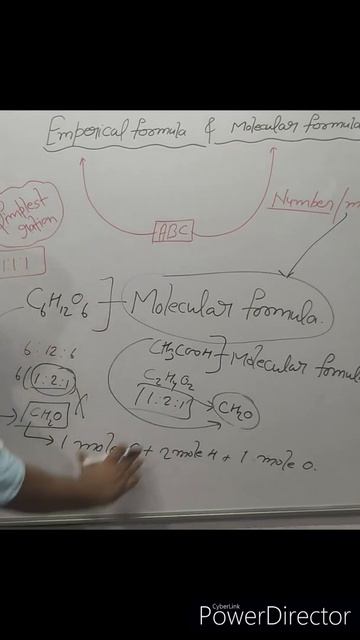 Emperical formula & Molecular formula
Simplest
Number/m
ABC
1:1:1
C6H12O6 ] Molecular formula.
6:12:6
CH3COOH ] Molecular formula
C2H4O2
6(1:2:1)
1:2:1
CH2O
CH2O
1 mole C + 2 mole H + 1 mole O.
CyberLink
PowerDirector